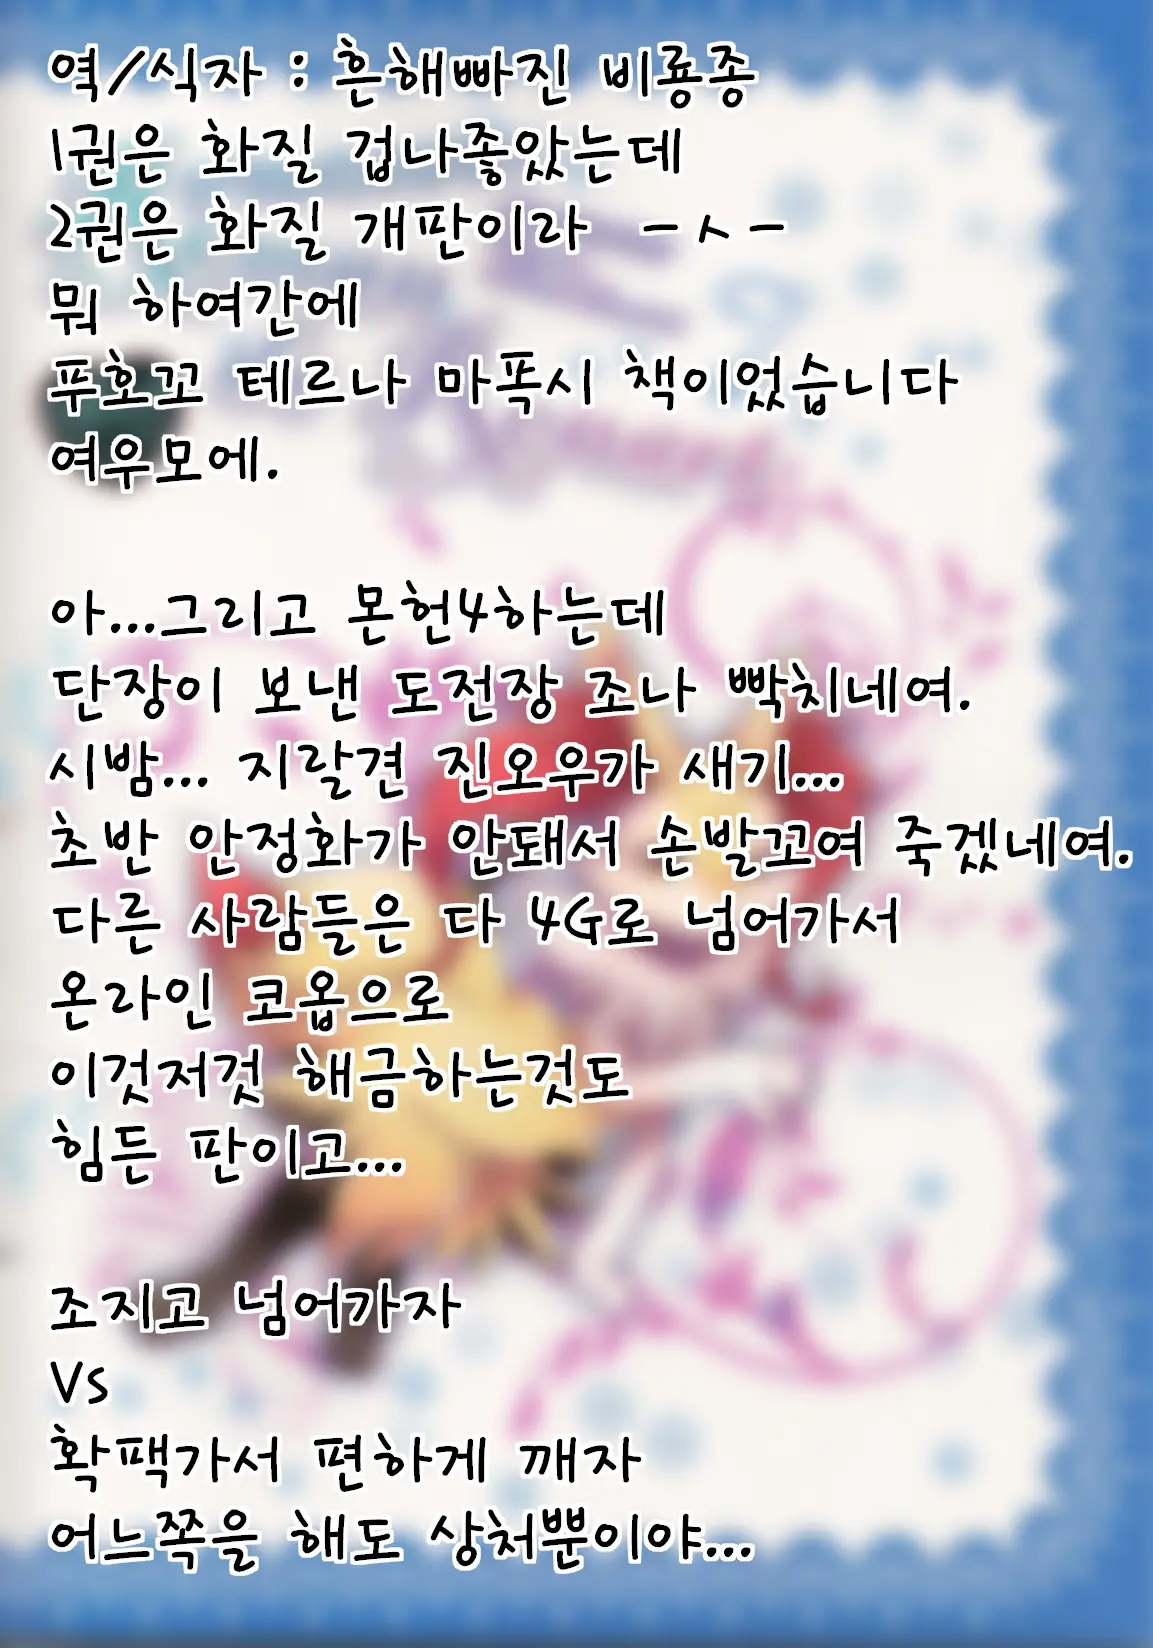 역/식자 : 흔해빠진 비룡종
1권은 화질 겁나좋았는데
2권은 화질 개판이라 -ㅅ-
뭐 하여간에
푸호꼬 테르나 마폭시 책이었습니다
여우모에.
아...그리고 몬헌4하는데
단장이 보낸 도전장 조나 빡치네여.
시밤... 지랄견 진오우가 새기...
초반 안정화가 안돼서 손발꼬여 죽겠네여.
다른 사람들은 다 4G로 넘어가서
온라인 코옵으로
이것저것 해금하는것도
힘든 판이고...
조지고 넘어가자
Vs
확팩가서 편하게 깨자
어느쪽을 해도 상처뿐이야...